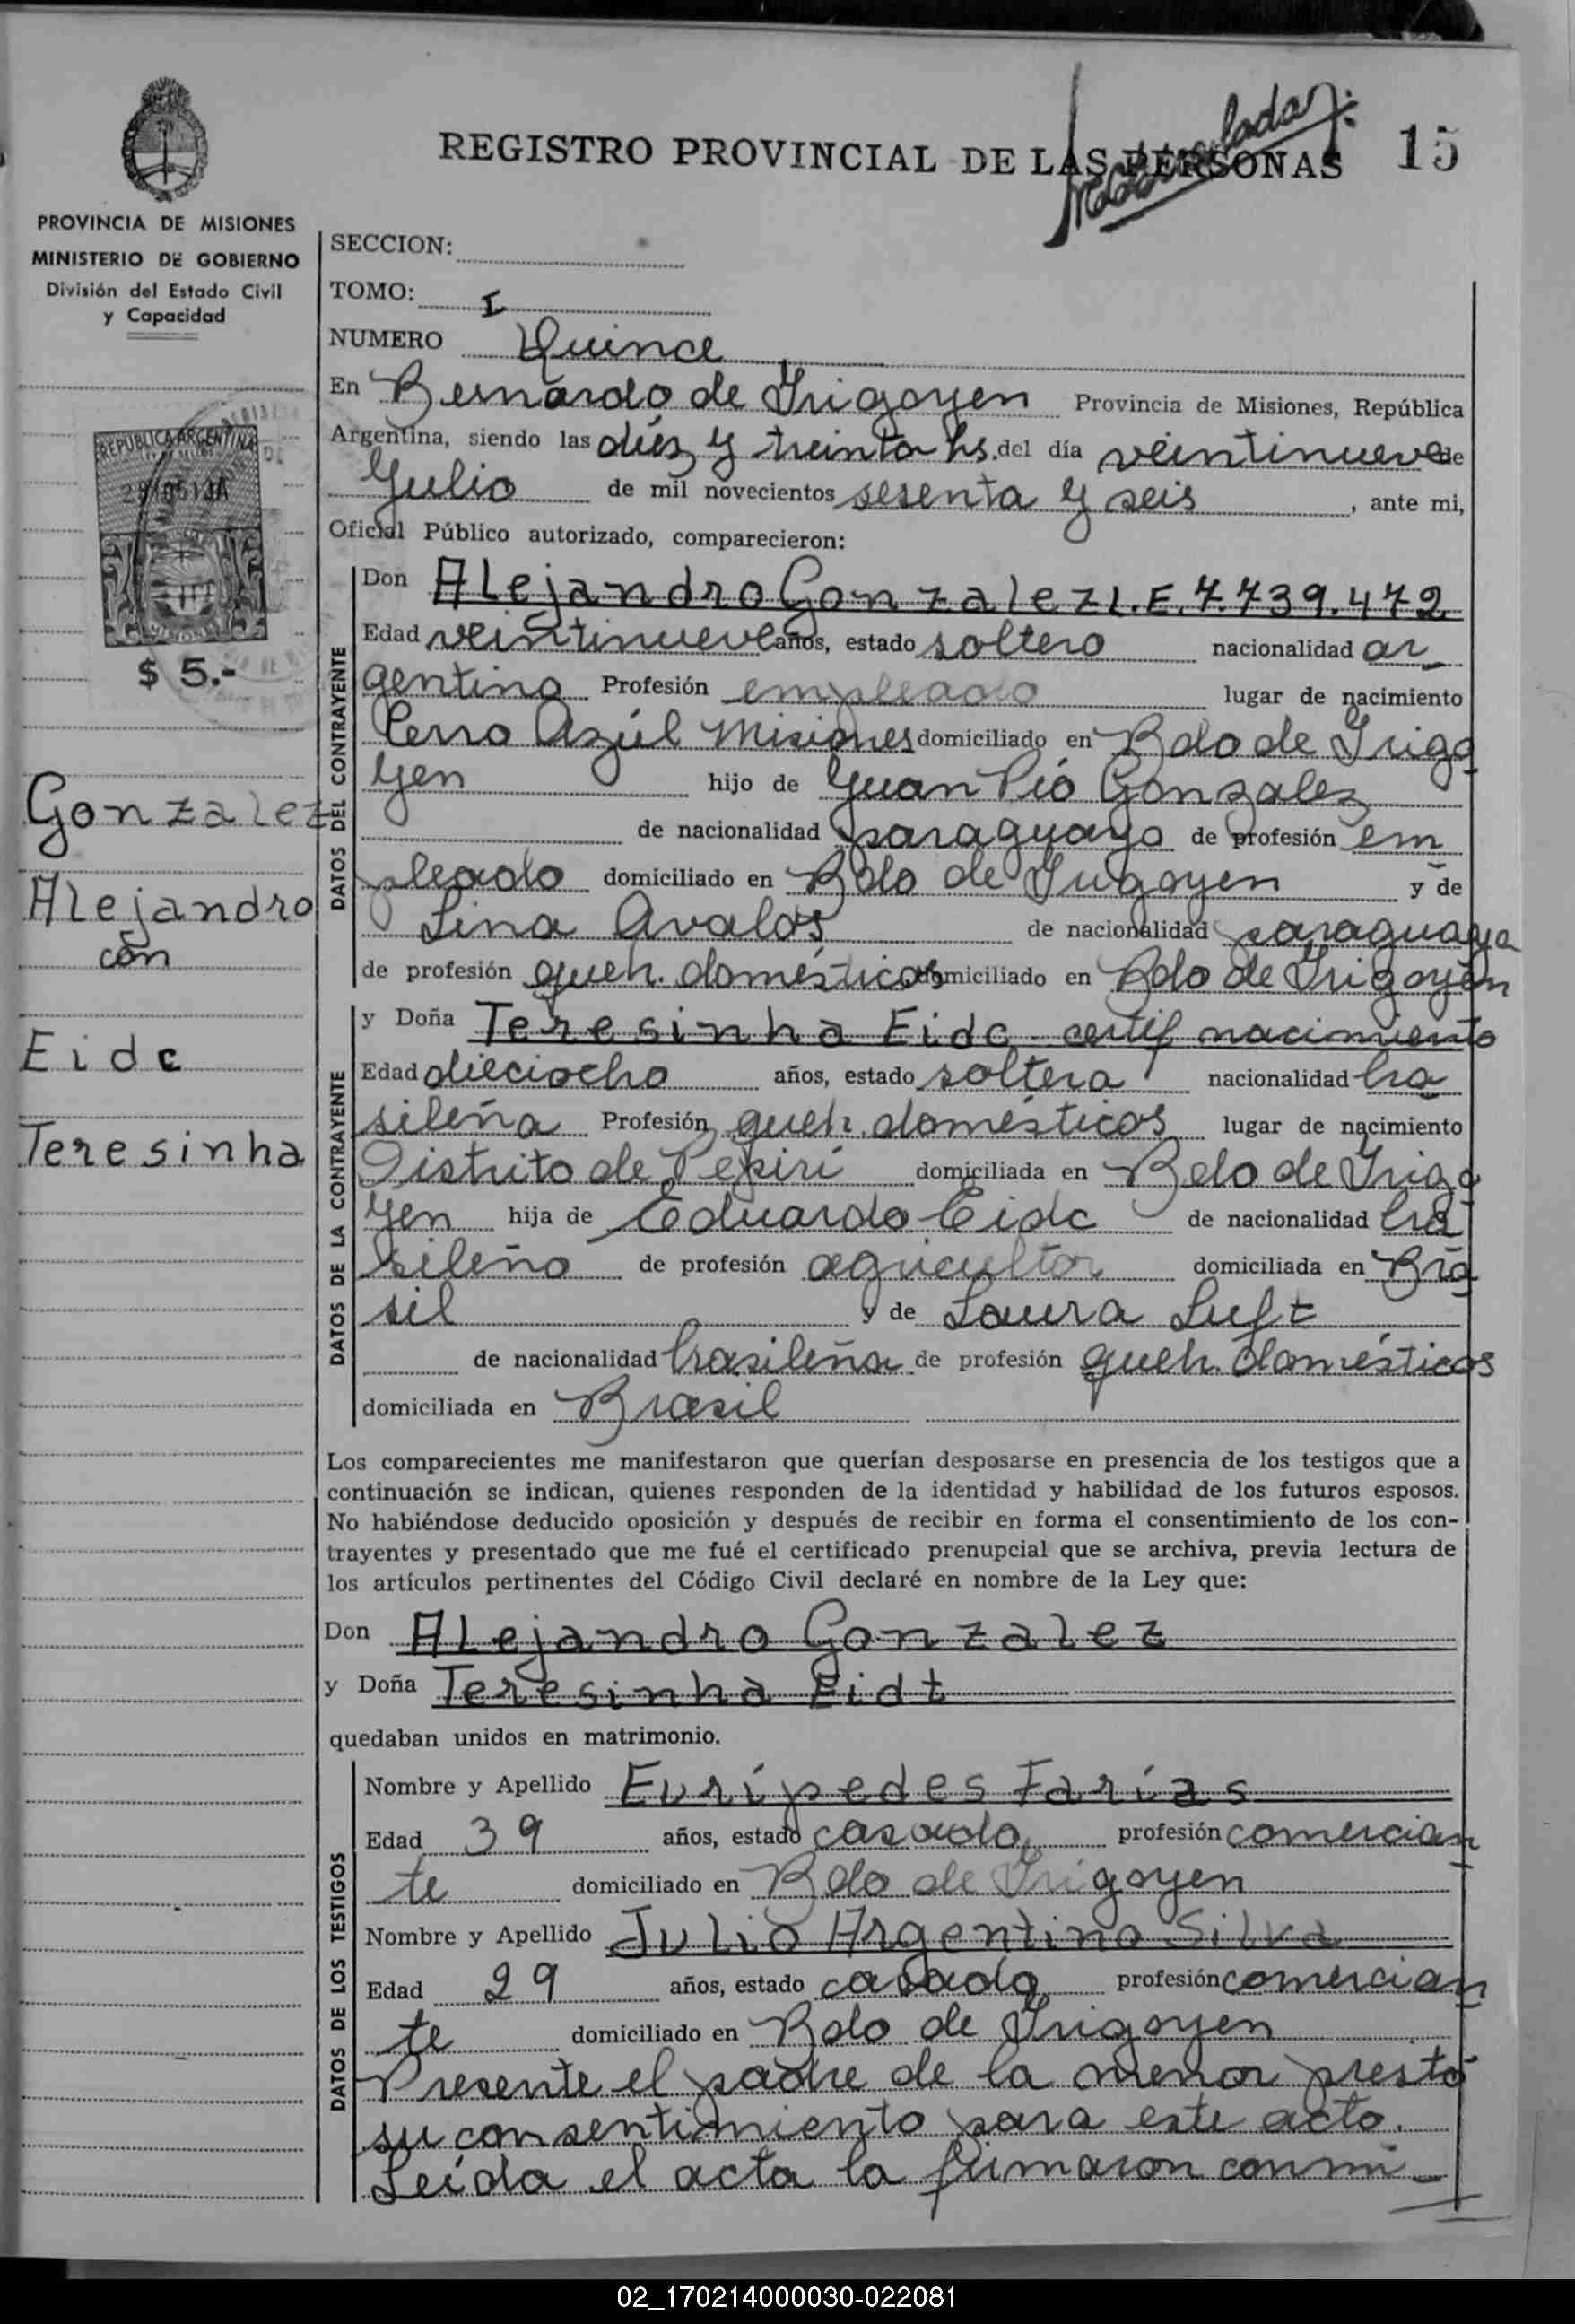 REGISTRO PROVINCIAL DE LAS PERSONAS 15
PROVINCIA DE MISIONES
MINISTERIO DE GOBIERNO
División del Estado Civil
y Capacidad
REPUBLICA ARGENTINA
$ 5.-
Gonzalez
Alejandro
con
Eidc
Teresinha
SECCION:
TOMO: I
NUMERO Quince
En Bernardo de Irigoyen Provincia de Misiones, República
Argentina, siendo las diéz y treinta hs. del día veintinueve de
Julio de mil novecientos sesenta y seis, ante mi,
Oficial Público autorizado, comparecieron:
DATOS DEL CONTRAYENTE
Don Alejandro Gonzalez L.E. 7.739.472
Edad veintinueve años, estado soltero nacionalidad ar
gentino Profesión empleado lugar de nacimiento
Cerro Azúl Misiones domiciliado en Bdo de Irigo
yen hijo de Juan Pío Gonzalez
de nacionalidad paraguayo de profesión em
pleado domiciliado en Bdo de Irigoyen y de
Lina Avalos de nacionalidad paraguaya
de profesión queh. domésticos domiciliado en Bdo de Irigoyen
DATOS DE LA CONTRAYENTE
y Doña Teresinha Eidc certif nacimiento
Edad dieciocho años, estado soltera nacionalidad bra
sileña Profesión queh. domésticos lugar de nacimiento
Distrito de Pepirí domiciliada en Bdo de Irigo
yen hija de Eduardo Eidc de nacionalidad bra
sileño de profesión agricultor domiciliada en Bra
sil y de Laura Luft
de nacionalidad brasileña de profesión queh. domésticos
domiciliada en Brasil
Los comparecientes me manifestaron que querían desposarse en presencia de los testigos que a
continuación se indican, quienes responden de la identidad y habilidad de los futuros esposos.
No habiéndose deducido oposición y después de recibir en forma el consentimiento de los con-
trayentes y presentado que me fué el certificado prenupcial que se archiva, previa lectura de
los artículos pertinentes del Código Civil declaré en nombre de la Ley que:
Don Alejandro Gonzalez
y Doña Teresinha Eidt
quedaban unidos en matrimonio.
DATOS DE LOS TESTIGOS
Nombre y Apellido Eurípedes Farías
Edad 39 años, estado casado profesión comercian
te domiciliado en Bdo de Irigoyen
Nombre y Apellido Julio Argentino Silva
Edad 29 años, estado casado profesión comercian
te domiciliado en Bdo de Irigoyen
Presente el padre de la menor prestó
su consentimiento para este acto.
Leída el acta la firmaron conmi
02_170214000030-022081